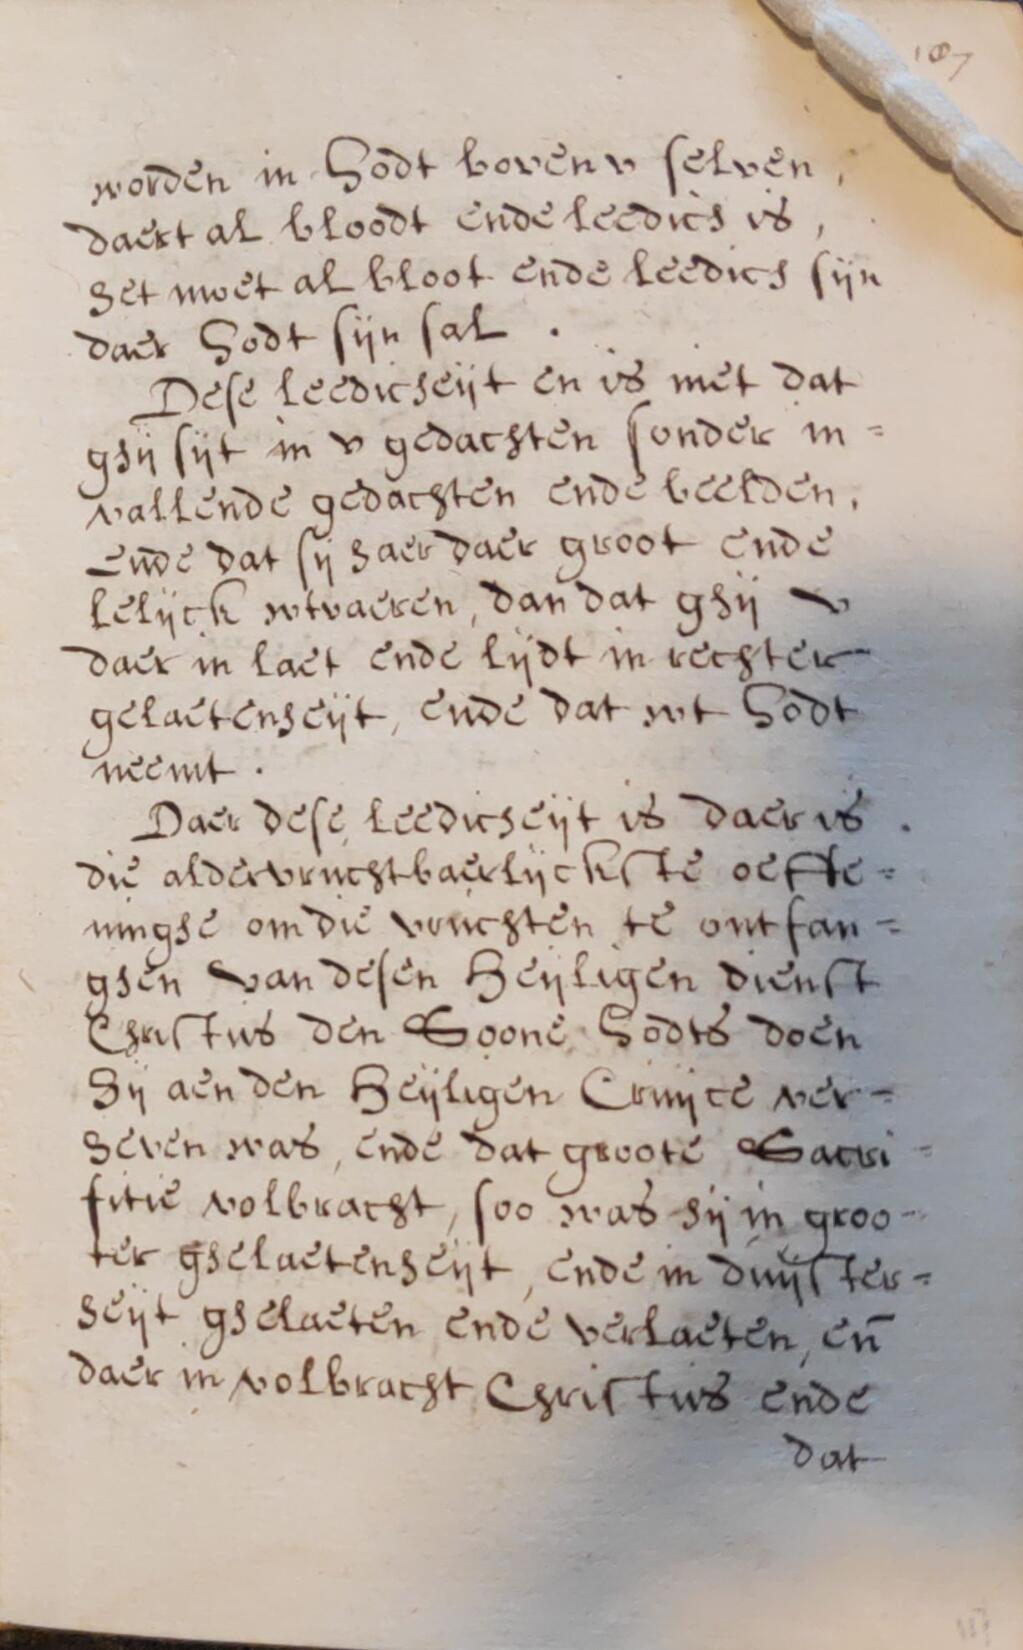 107
worden in Godt boven v selven,
daert al bloodt ende leedich is,
het moet al bloot ende leedich sijn
daer Godt sijn sal.
Dese leedicheijt en is niet dat
ghij sijt in v gedachten sonder in=
vallende gedachten ende beelden,
ende dat sij haer daer groot ende
lelijck wtvaeren, dan dat ghij v
daer in laet ende lijdt in rechter
gelaetenheijt, ende dat wt Godt
neemt.
Daer dese leedicheijt is daer is
die aldervruchtbaerlijckste oeffe=
ninghe om die vruchten te ontfan=
ghen van desen Heijligen dienst
Christus den Soone Godts doen
hij aen den Heijligen Cruijce ver=
heven was, ende dat groote Sacri=
fitie volbracht, soo was hij in groo=
ter ghelaetenheijt, ende in duijster=
heijt ghelaeten ende verlaeten, en̄
daer in volbracht Christus ende
dat